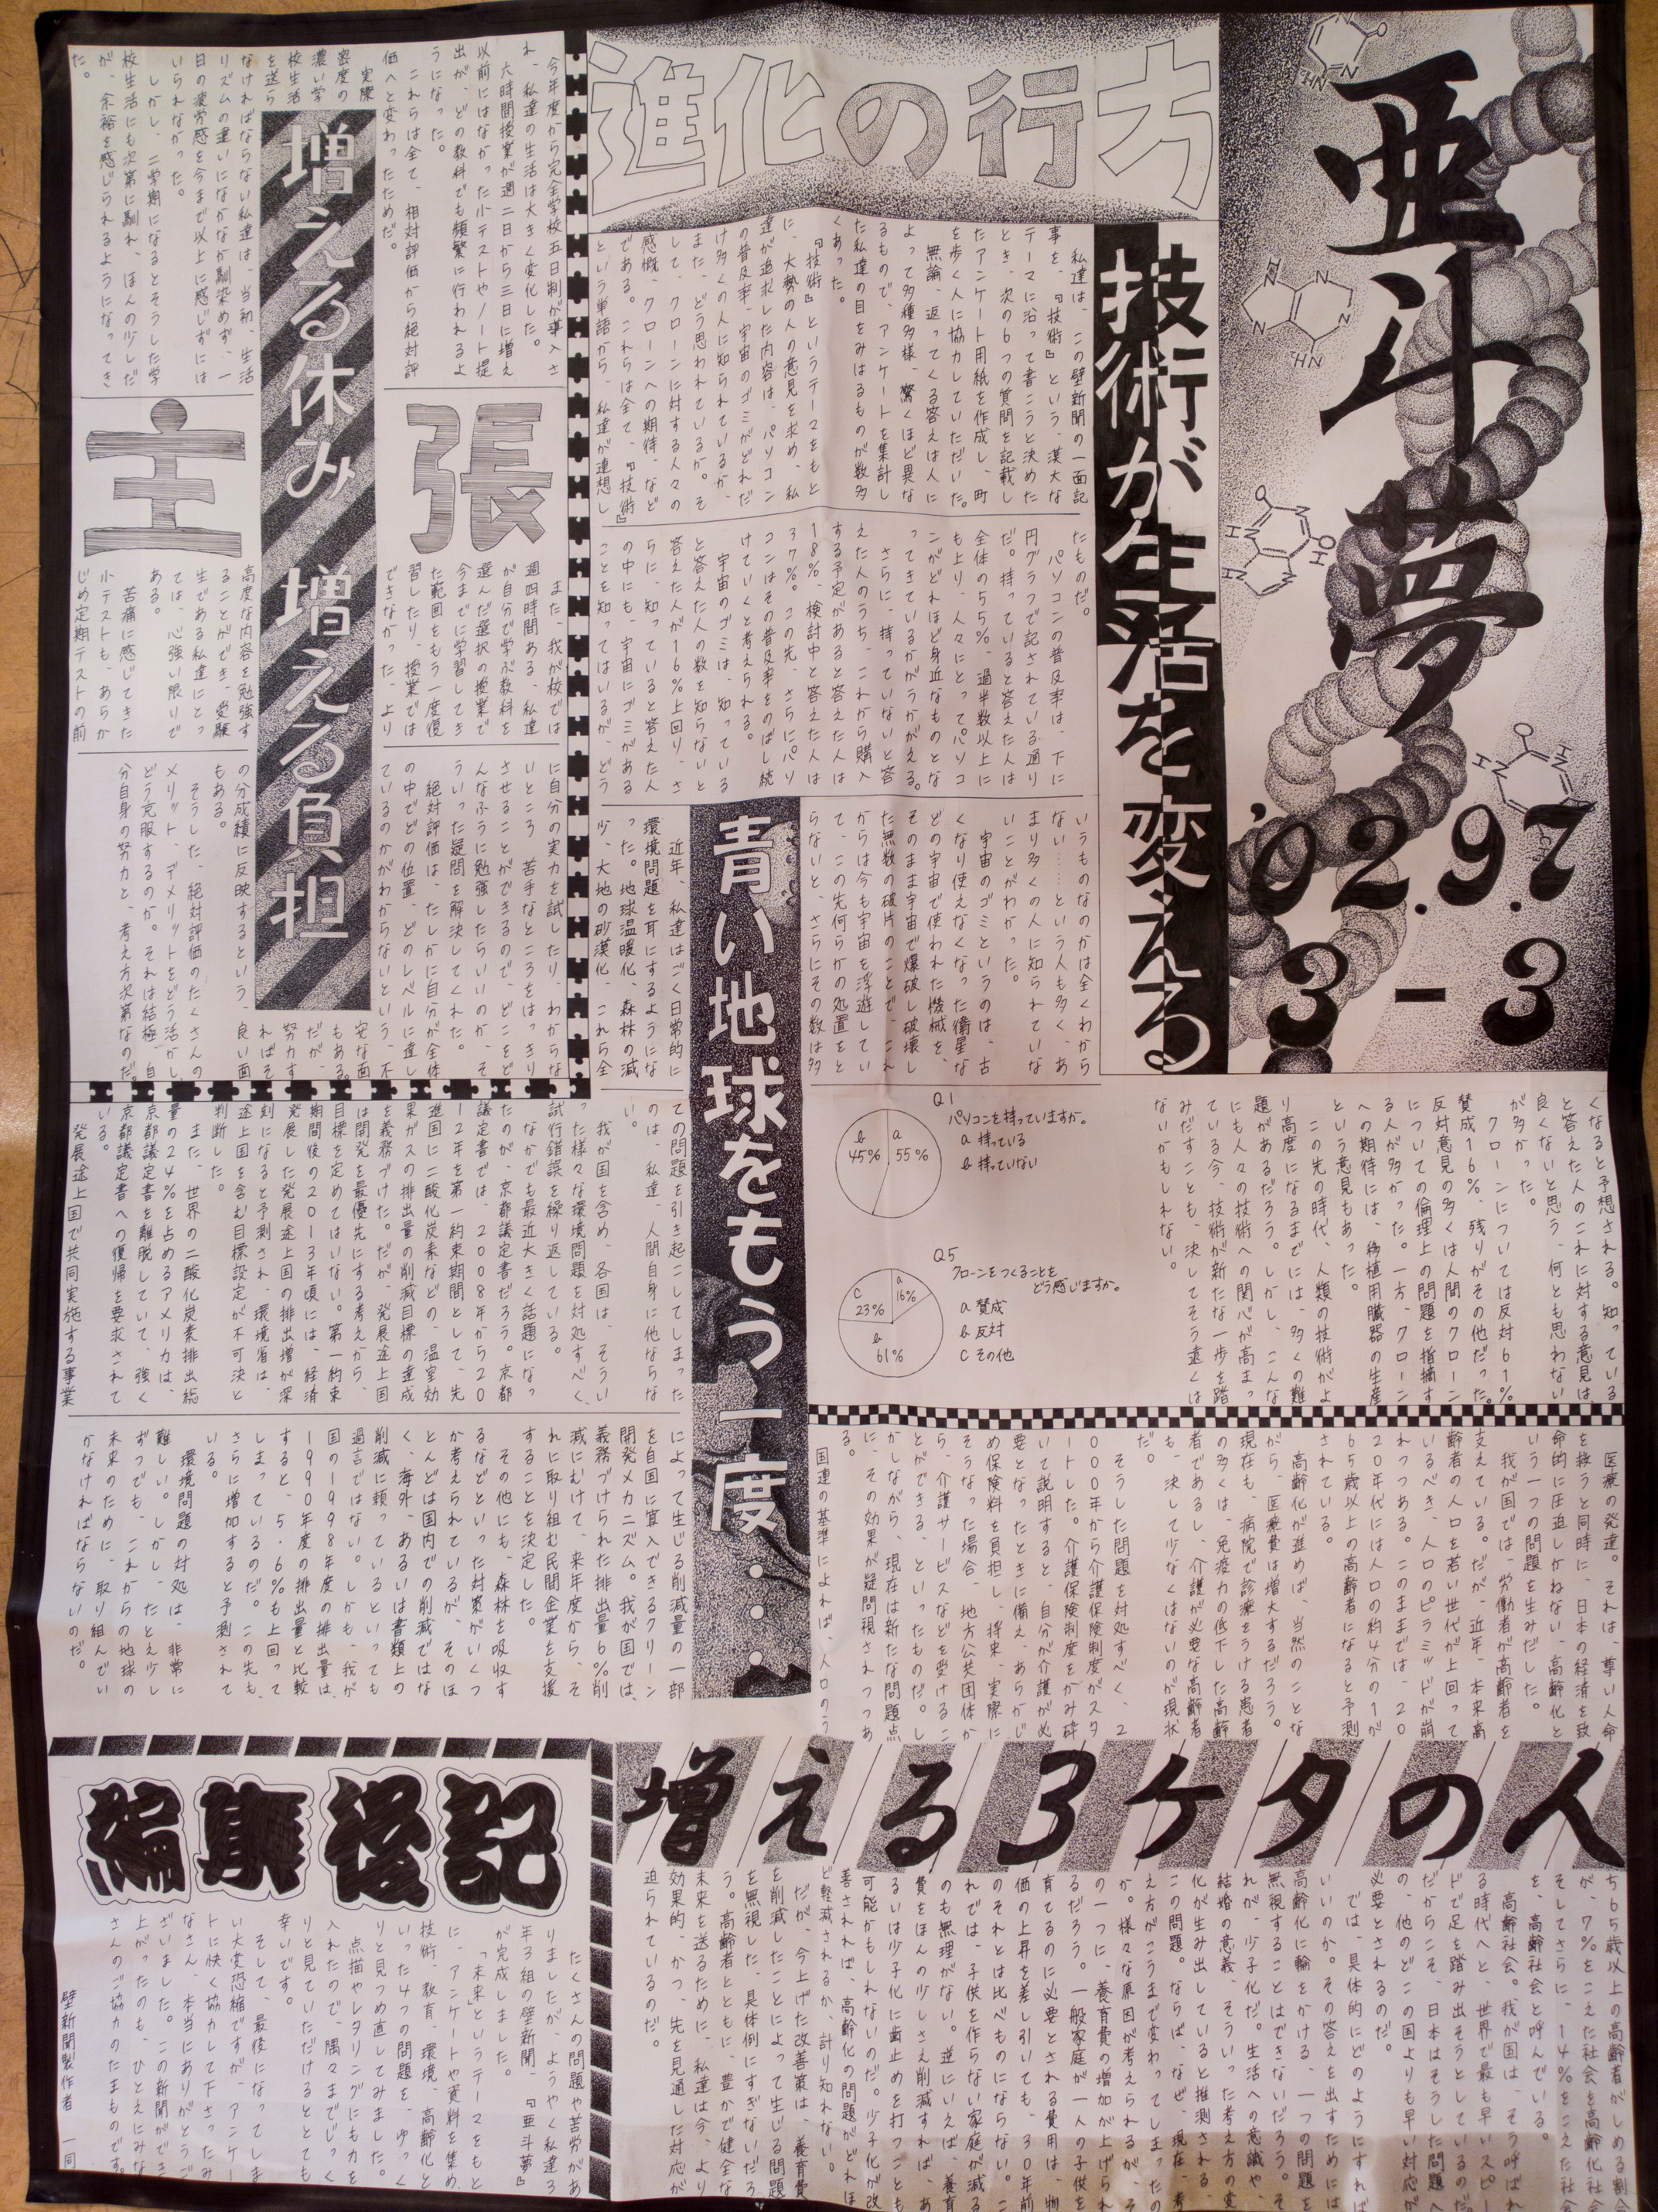 亜斗夢
'02.9.7
3-3
進化の行方
技術が生活を変える
私達は、この壁新聞の一面記
事を、『技術』という、漠大な
テーマに沿って書こうと決めた
とき、次の6つの質問を記載し
たアンケート用紙を作成し、町
を歩く人に協力していただいた。
無論、返ってくる答えは人に
よって多種多様、驚くほど異な
るもので、アンケートを集計し
た私達の目をみはるものが数多
くあった。
『技術』というテーマをもと
に、大勢の人の意見を求め、私
達が追求した内容は、パソコン
の普及率、宇宙のゴミがどれだ
け多くの人に知られているか、
また、どう思われているか。そ
して、クローンに対する人々の
感慨、クローンへの期待、など
である。これらは全て、『技術』
という単語から、私達が連想し
たものだ。
パソコンの普及率は、下に
円グラフで記されている通り
だ。持っていると答えた人は
全体の55%、過半数以上に
も上り、人々にとってパソコ
ンがどれほど身近なものとな
ってきているかがうかがえる。
さらに、持っていないと答
えた人のうち、これから購入
する予定があると答えた人は
18%、検討中と答えた人は
37%。この先、さらにパソ
コンはその普及率をのばし続
けていくと考えられる。
宇宙のゴミは、知っている
と答えた人の数を知らないと
答えた人が16%上回り、さ
らに、知っていると答えた人
の中にも、宇宙にゴミがある
ことを知ってはいるが、どう
いうものなのかは全くわから
ない……という人も多く、あ
まり多くの人に知られていな
いことがわかった。
宇宙のゴミというのは、古
くなり使えなくなった衛星な
どの宇宙で使われた機械を、
そのまま宇宙で爆破し破壊し
た無数の破片のことで、これ
からは今も宇宙を浮遊してい
て、この先何らかの処置をと
らないと、さらにその数は多
くなると予想される。知っている
と答えた人のこれに対する意見は、
良くないと思う、何とも思わない
が多かった。
クローンについては反対61%
賛成16%、残りがその他だった。
反対意見の多くは人間のクローン
についての倫理上の問題を指摘す
る人が多かった。一方、クローン
への期待には、移植用臓器の生産
という意見もあった。
この先の時代、人類の技術がよ
り高度になるまでには、多くの難
題があるだろう。しかし、こんな
にも人々の技術への関心が高まっ
ている今、技術が新たな一歩を踏
みだすことも、決してそう遠くは
ないかもしれない。
Q1
パソコンを持っていますか。
a 持っている
b 持っていない
a 55%
b 45%
Q5
クローンをつくることを
どう感じますか。
a 賛成
b 反対
c その他
a 16%
b 61%
c 23%
主張
増える休み 増える負担
今年度から完全学校五日制が導入さ
れ、私達の生活は大きく変化した。
六時間授業が週二日から三日に増え
以前にはなかった小テストやノート提
出が、どの教科でも頻繁に行われるよ
うになった。
これらは全て、相対評価から絶対評
価へと変わったためだ。
実際
密度の
濃い学
校生活
を送ら
なければならない私達は、当初、生活
リズムの違いになかなか馴染めず、一
日の疲労感を今まで以上に感じずには
いられなかった。
しかし、二学期になるとそうした学
校生活にも次第に馴れ、ほんの少しだ
が、余裕を感じられるようになってき
た。
また、我が校では
週四時間ある、私達
が自分で学ぶ教科を
選んだ選択の授業で
今までに学習してき
た範囲をもう一度復
習したり、授業では
できなかった、より
高度な内容を勉強す
ることができ、受験
生である私達にとっ
ては、心強い限りで
ある。
苦痛に感じてきた
小テストも、あらか
じめ定期テストの前
に自分の実力を試したり、わからな
いところ 苦手なところをはっきり
させることができるので、どこをど
んなふうに勉強したらいいのか、そ
ういった疑問を解決してくれた。
絶対評価は、たしかに自分が全体
の中でどの位置、どのレベルに達し
ているのかがわからないという、不
安な面
もある。
だが、
努力す
ればそ
良い面
の分成績に反映するという、
もある。
そうした、絶対評価のたくさんの
メリット、デメリットをどう活かし
どう克服するのか。それは結極、自
分自身の努力と、考え方次第なのだ。
青い地球をもう一度……
近年、私達はごく日常的に
環境問題を耳にするようにな
った。地球温暖化、森林の減
少、大地の砂漠化、これら全
ての問題を引き起こしてしまった
のは、私達、人間自身に他ならな
い。
我が国を含め、各国は、そうい
った様々な環境問題を対処すべく、
試行錯誤を繰り返している。
なかでも最近大きく話題になっ
たのが、京都議定書だろう。京都
議定書では、2008年から20
12年を第一約束期間として、先
進国に二酸化炭素などの、温室効
果ガスの排出量の削減目標の達成
を義務づけた。だが、発展途上国
は開発を最優先にする考えから、
目標を定めてはいない。第一約束
期間後の2013年頃には、経済
発展した発展途上国の排出増が深
刻になると予測され、環境省は、
途上国を含む目標設定が不可決と
判断した。
また、世界の二酸化炭素排出総
量の24%を占めるアメリカは、
京都議定書を離脱していて、強く
京都議定書への復帰を要求されて
いる。
発展途上国で共同実施する事業
によって生じる削減量の一部
を自国に算入できるクリーン
開発メカニズム。我が国では、
義務づけられた排出量6%削
減にむけて、来年度から、そ
れに取り組む民間企業を支援
することを決定した。
その他にも、森林を吸収す
るなどといった対策がいくつ
か考えられているが、そのほ
とんどは国内での削減ではな
く、海外、あるいは書類上の
削減に頼っているといっても
過言ではない。しかも、我が
国の1998年度の排出量は、
1990年度の排出量と比較
すると、5.6%も上回って
しまっているのだ。この先も、
さらに増加すると予測されて
いる。
環境問題の対処は、非常に
難しい。しかし、たとえ少し
ずつでも、これからの地球の
未来のために、取り組んでい
かなければならないのだ。
増える3ケタの人
医療の発達。それは、尊い人命
を救うと同時に、日本の経済を致
命的に圧迫しかねない、高齢化と
いう一つの問題を生みだした。
我が国では、労働者が高齢者を
支えている。だが、近年、本来高
齢者の人口を若い世代が上回って
いるべき、人口のピラミッドが崩
れつつある。このままでは、20
20年代には人口の約4分の1が
65歳以上の高齢者になると予測
されている。
高齢化が進めば、当然のことな
がら、医療費は増大するだろう。
現在も、病院で診療をうける患者
の多くは、免疫力の低下した高齢
者であるし、介護が必要な高齢者
も、決して少なくはないのが現状
だ。
そうした問題を対処すべく、2
000年から介護保険制度がスタ
ートした。介護保険制度をかみ砕
いて説明すると、自分が介護が必
要となったときに備え、あらかじ
め保険料を負担し、将来、実際に
そうなった場合、地方公共団体か
ら、介護サービスなどを受けるこ
とができる、といったものだ。し
かしながら、現在は新たな問題点
に、その効果が疑問視されつつあ
る。
国連の基準によれば、人口のう
ち65歳以上の高齢者がしめる割合
が、7%をこえた社会を高齢化社会
そしてさらに、14%をこえた社会
を、高齢社会と呼んでいる。
高齢社会。我が国は、そう呼ばれ
る時代へと、世界で最も早いスピー
ドで足を踏み出そうとしているのだ。
だからこそ、日本はそうした問題へ
の、他のどこの国よりも早い対応が
必要とされるのだ。
では、具体的にどのようにすれば
いいのか。その答えを出すためには
高齢化に輪をかける、一つの問題を
無視することはできないだろう。そ
れが、少子化だ。生活への意識や、
結婚の意義、そういった考え方の変
化が生み出していると推測される、
この問題。ならば、なぜ、現在、考
え方がこうまで変わってしまったの
か。様々な原因が考えられるが、そ
の一つに、養育費の増加が上げられ
るだろう。一般家庭が一人の子供を
育てるのに必要とされる費用は、物
価の上昇を差し引いても、30年前
のそれとは比べものにならない。こ
れでは、子供を作らない家庭が減る
のも無理がない。逆にいえば、養育
費をほんの少しさえ削減すれば、あ
るいは少子化に歯止めを打つことも
可能かもしれないのだ。少子化が改
善されれば、高齢化の問題がどれほ
ど軽減されるか、計り知れない。
だが、今上げた改善策は、養育費
を削減したことによって生じる問題
を無視した、具体例にすぎないだろ
う。高齢者とともに、豊かで健全な
未来を送るために、私達は今、より
効果的、かつ、先を見通した対応が
迫られているのだ。
編集後記
たくさんの問題や苦労があ
りましたが、ようやく私達3
年3組の壁新聞、『亜斗夢』
が完成しました。
「未来」というテーマをもと
に、アンケートや資料を集め、
技術、教育、環境、高齢化と
いった4つの問題を、ゆっく
りと見つめ直してみました。
点描やレタリングにも力を
入れたので、隅々までじっく
りと見ていただけるととても
幸いです。
そして、最後になってしま
い大変恐縮ですが、アンケー
トに快く協力して下さったみ
なさん、本当にありがとうご
ざいました。この新聞ができ
上がったのも、ひとえにみな
さんのご協力のたまものです。
壁新聞製作者 一同